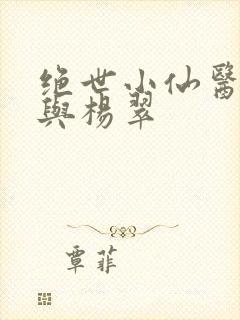 绝世小仙醫
與楊翠
覃菲